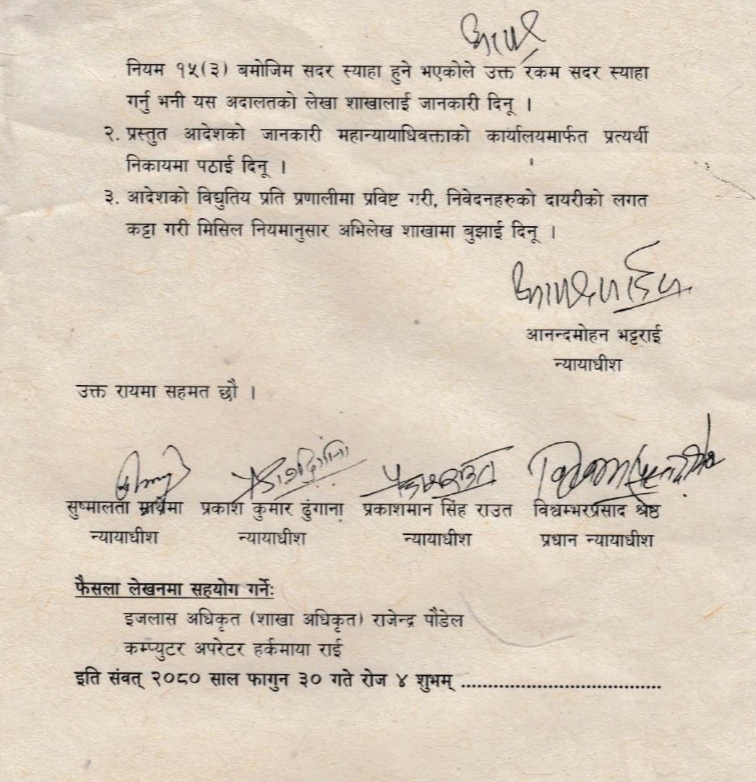 नियम १५(३) बमोजिम सदर स्याहा हुने भएकोले उक्त रकम सदर स्याहा
गर्नु भनी यस अदालतको लेखा शाखालाई जानकारी दिनू ।
२. प्रस्तुत आदेशको जानकारी महान्यायाधिवक्ताको कार्यालयमार्फत प्रत्यर्थी
निकायमा पठाई दिनू ।
३. आदेशको विद्युतिय प्रति प्रणालीमा प्रविष्ट गरी, निवेदनहरुको दायरीको लगत
कट्टा गरी मिसिल नियमानुसार अभिलेख शाखामा बुझाई दिनू ।
आनन्दमोहन भट्टराई
न्यायाधीश
उक्त रायमा सहमत छौ ।
सुष्मालता माथेमा प्रकाश कुमार ढुंगाना प्रकाशमान सिंह राउत विश्वम्भरप्रसाद श्रेष्ठ
न्यायाधीश न्यायाधीश न्यायाधीश प्रधान न्यायाधीश
फैसला लेखनमा सहयोग गर्नेः
इजलास अधिकृत (शाखा अधिकृत) राजेन्द्र पौडेल
कम्प्युटर अपरेटर हर्कमाया राई
इति संवत् २०८० साल फागुन ३० गते रोज ४ शुभम् ......................................